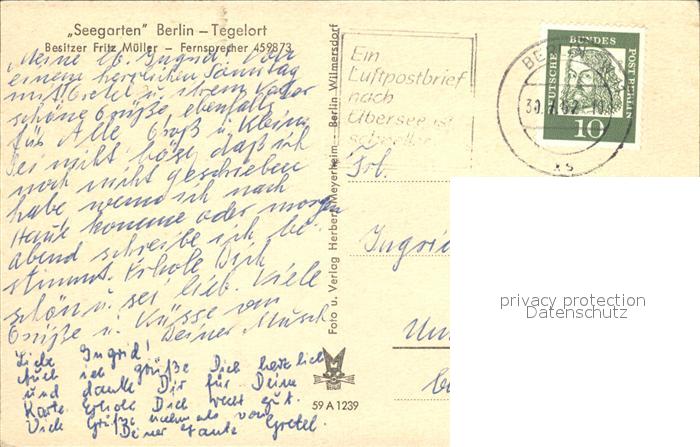 „Seegarten" Berlin – Tegelort
Besitzer Fritz Müller – Fernsprecher 459873
Meine lb. Ingrid! Von
einem herrlichen Sonntag
mit Gretel u. ihrem Vater
schöne Grüße ebenfalls
für Alle Groß u. Klein
Sei nicht böse, daß ich
noch nicht geschrieben
habe wenn ich nach
Hause komme oder morgen
abend schreibe ich be-
stimmt. Erhole Dich
schön u. sei lieb. Viele
Grüße u. Küsse von
Deiner
Liebe Ingrid!
Auch ich grüße Dich herzlich
und danke Dir für Deine
Karte. Erhole Dich recht gut.
Viele Grüße nochmals von
Deiner Tante Gretel.
Foto u. Verlag Herbert Meyerheim – Berlin Wilmersdorf
59 A 1239
Ein
Luftpostbrief
nach
Übersee ist
schneller
BERLIN
30.
62
DEUTSCHE BUNDESPOST BERLIN
10
Frl.
Ingrid
privacy protection
Datenschutz